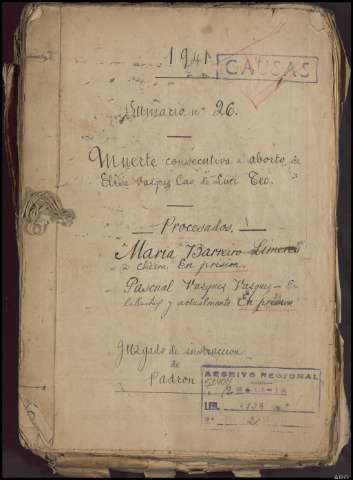 1941
CAUSAS
Sumario nº 26.
Muerte consecutiva a aborto, de
Elisa Vasques Cao de Luci Teo.
Procesados,
María Barreiro
En prision
Pascual Vasques Vasques
y actualmente En prision
Juzgado de instruccion
de
Padron
ARCHIVO REGIONAL
GALICIA
LEG.